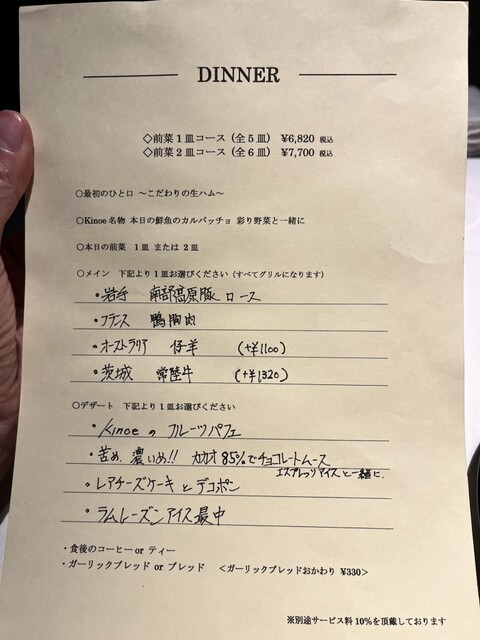 DINNER
◇前菜1皿コース (全5皿) ¥6,820 税込
◇前菜2皿コース (全6皿) ¥7,700 税込
○最初のひと口 ～こだわりの生ハム～
○Kinoe名物 本日の鮮魚のカルパッチョ 彩り野菜と一緒に
○本日の前菜 1皿 または 2皿
○メイン 下記より1皿お選びください (すべてグリルになります)
・岩手 南部高原豚 ロース
・フランス 鴨胸肉
・オーストラリア 仔羊 (+¥1100)
・茨城 常陸牛 (+¥1320)
○デザート 下記より1皿お選びください
・Kinoeの フルーツパフェ
・苦め、濃いめ!! カカオ85%でチョコレートムース
エスプレッソアイスと一緒に.
・レアチーズケーキとデコポン
・ラムレーズンアイス最中
・食後のコーヒーor ティー
・ガーリックブレッド or ブレッド <ガーリックブレッドおかわり ¥330>
※別途サービス料10%を頂戴しております